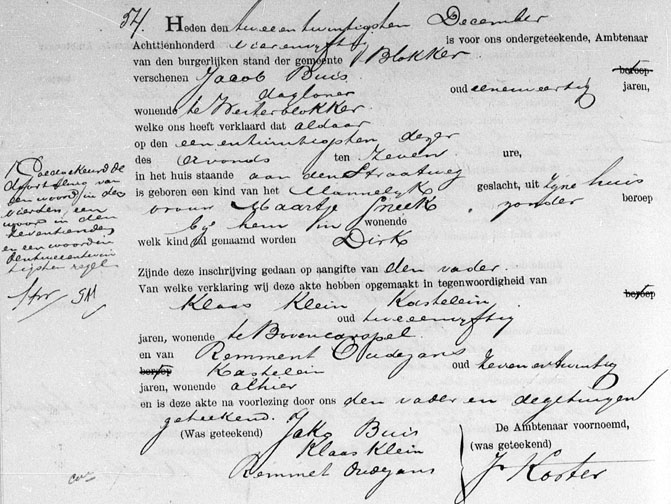 54. Heden den twee en twintigsten December
Achttienhonderd vierenvyftig is voor ons ondergeteekende, Ambtenaar
van den burgerlijken stand der gemeente Blokker
verschenen Jacob Buis beroep
dagloner oud eenenveertig jaren,
wonende te Westerblokker
welke ons heeft verklaard dat aldaar
op den een en twintigsten dezer
des avonds ten zeven ure,
in het huis staande aan den Straatweg
is geboren een kind van het Mannelyk geslacht, uit zyne huis
vrouw Maartje Sneek, zonder beroep
by hem in wonende
welk kind zal genaamd worden Dirk
Zijnde deze inschrijving gedaan op aangifte van den vader.
Van welke verklaring wij deze akte hebben opgemaakt in tegenwoordigheid van
Klaas Klein Kastelein beroep
oud tweeenvyftig
jaren, wonende te Bovencarspel
en van Remment Oudejans
beroep Kastelein oud zeven en twintig
jaren, wonende alhier
en is deze akte na voorlezing door ons den vader en de getuigen
geteekend.
(Was geteekend) Jako Buis
Klaas Klein
Remmet Oudejans
De Ambtenaar voornoemd,
(was geteekend)
Koster
Goedgekeurd de
doorhaling van
een woord in den
vierden, een
woord in den
zeventienden
en een woord in
den tweeentwin
tigsten regel